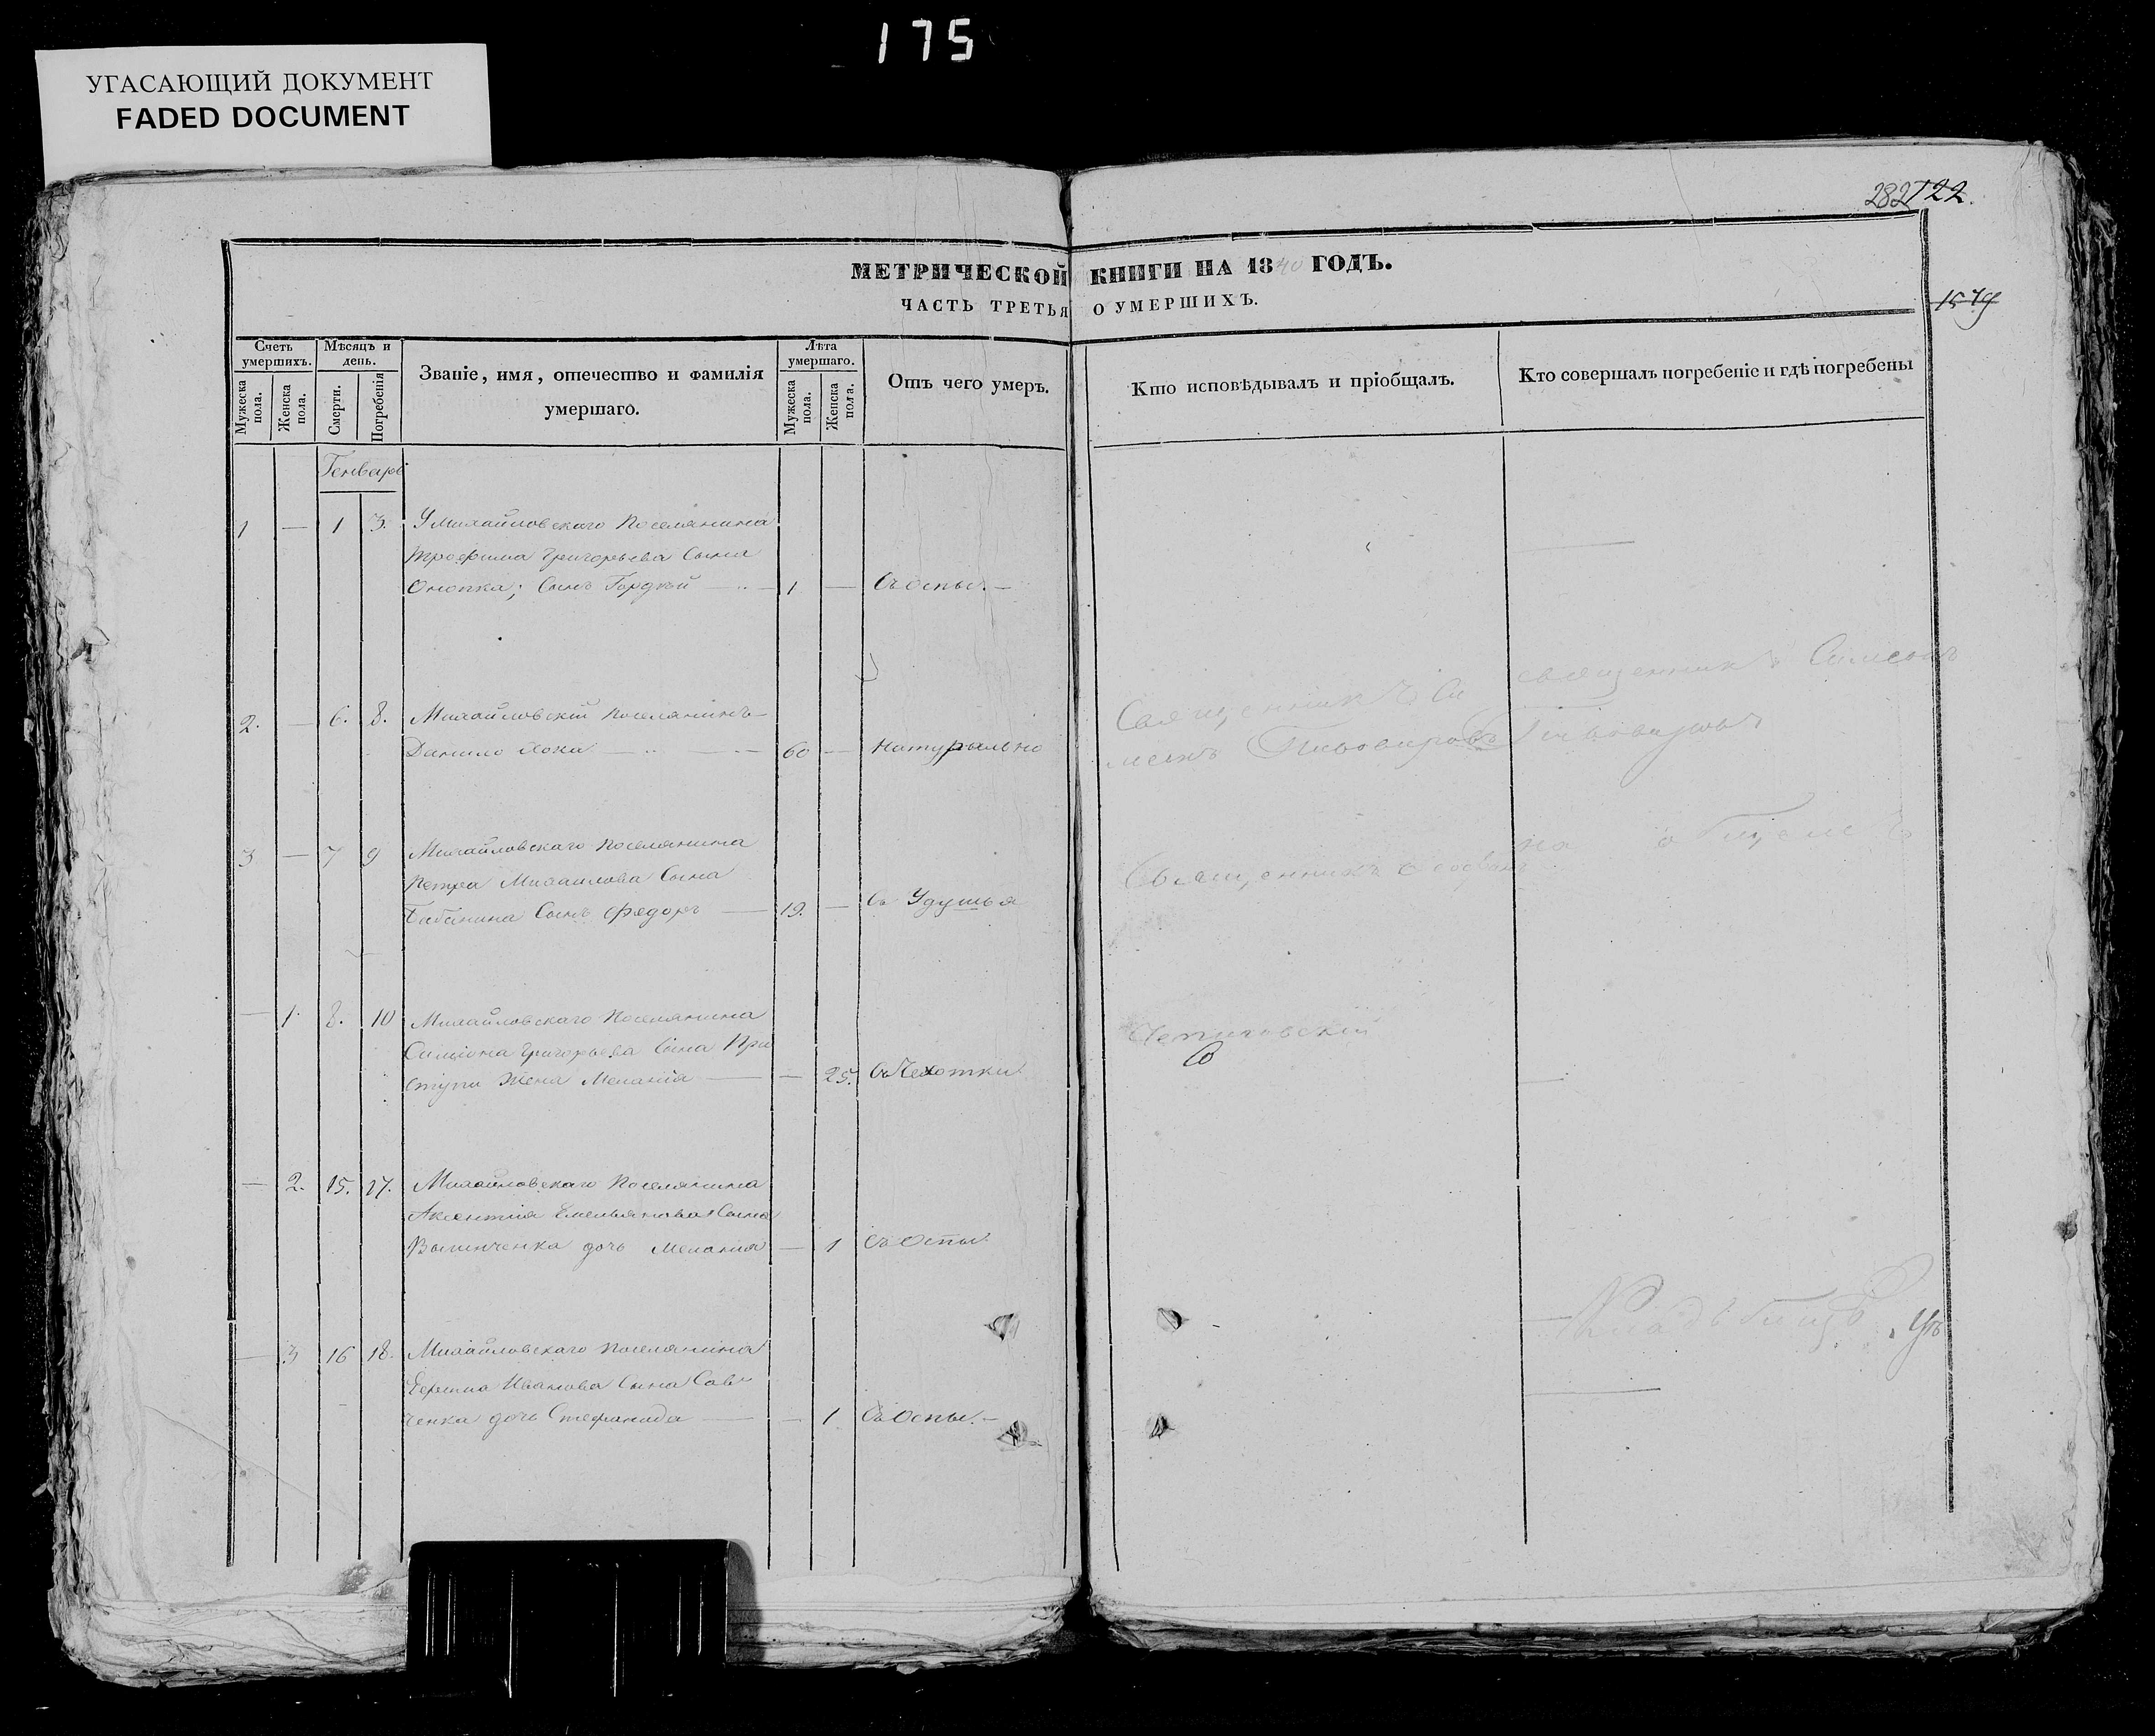 175
УГАСАЮЩИЙ ДОКУМЕНТ
FADED DOCUMENT
282 122.
МЕТРИЧЕСКОЙ КНИГИ НА 1840 ГОДЪ.
ЧАСТЬ ТРЕТЬЯ О УМЕРШИХЪ.
1579
Счетъ умершихъ.
Мужеска пола.
Женска пола.
Мѣсяцъ и день.
Смерти.
Погребенія
Званіе, имя, отечество и фамилія умершаго.
Лѣта умершаго.
Мужеска пола.
Женска пола.
Отъ чего умеръ.
Кто исповѣдывалъ и пріобщалъ.
Кто совершалъ погребеніе и гдѣ погребены
Генварь
1 — 1 3. Умихайловскаго Поселянина
Трофима Григорьева Сына
Онопка; Сынъ Гордѣй — 1 — Съ оспы. —
2. — 6. 8. Михайловскій Поселянинъ
Данило 60 — Натурально
Священникъ Си
меонъ Пивоваровъ
священникъ Симеонъ
Пивоваровъ
3 — 7 9 Михайловскаго Поселянина
Петра Михайлова Сына
Бабанина Сынъ Федоръ — 19. — Съ Удушья
Священникъ
на общемъ
— 1. 8. 10 Михайловскаго Поселянина
Симіона Григорьева Сына При
ступы Жена Меланія — — 25. Съ Чехотки
— 2. 15. 17. Михайловскаго Поселянина
Аксентія Емельянова Сына
дочь Меланія — 1 Съ Оспы
— 3 16 18. Михайловскаго Поселянина
Ефима Иванова Сына Сав
ченка дочь Стефанида — — 1 Съ Оспы. —
Кладбищѣ